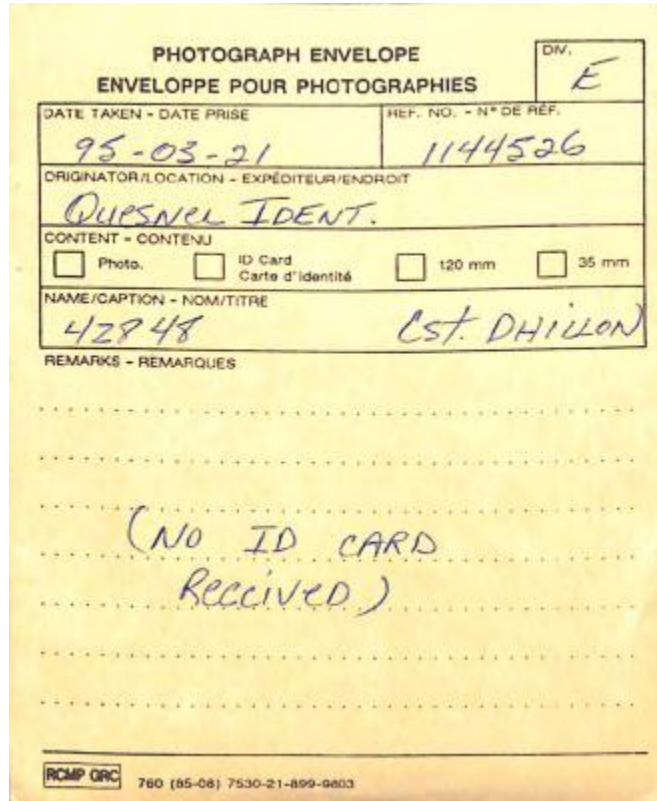 PHOTOGRAPH ENVELOPE
ENVELOPPE POUR PHOTOGRAPHIES
DIV.
E
DATE TAKEN - DATE PRISE
95-03-21
REF. NO. - N° DE RÉF.
1144526
ORIGINATOR/LOCATION - EXPÉDITEUR/ENDROIT
QUESNEL IDENT.
CONTENT - CONTENU
Photo.
ID Card
Carte d'identité
120 mm
35 mm
NAME/CAPTION - NOM/TITRE
42848 Cst. DHILLON
REMARKS - REMARQUES
(NO ID CARD
Received)
RCMP GRC 760 (85-08) 7530-21-899-9803